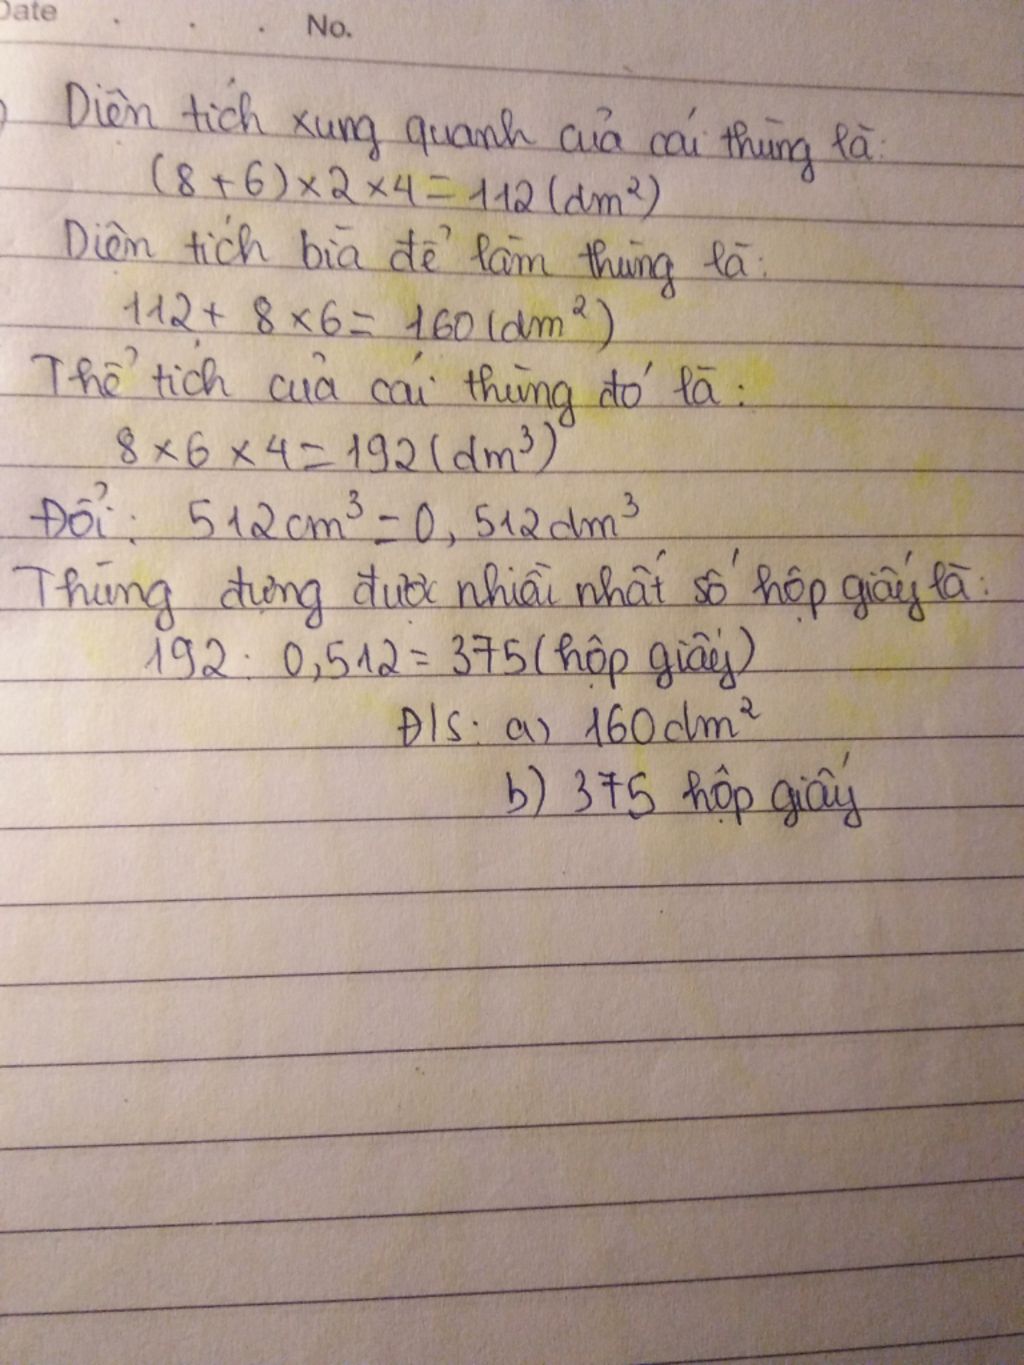 Date . . . No.
Diện tích xung quanh của cái thùng là:
(8 + 6) × 2 × 4 = 112 (dm²)
Diện tích bìa để làm thùng là:
112 + 8 × 6 = 160 (dm²)
Thể tích của cái thùng đó là:
8 × 6 × 4 = 192 (dm³)
Đổi: 512 cm³ = 0,512 dm³
Thùng đựng được nhiều nhất số hộp giấy là:
192 : 0,512 = 375 (hộp giấy)
Đ/S: a) 160 dm²
b) 375 hộp giấy